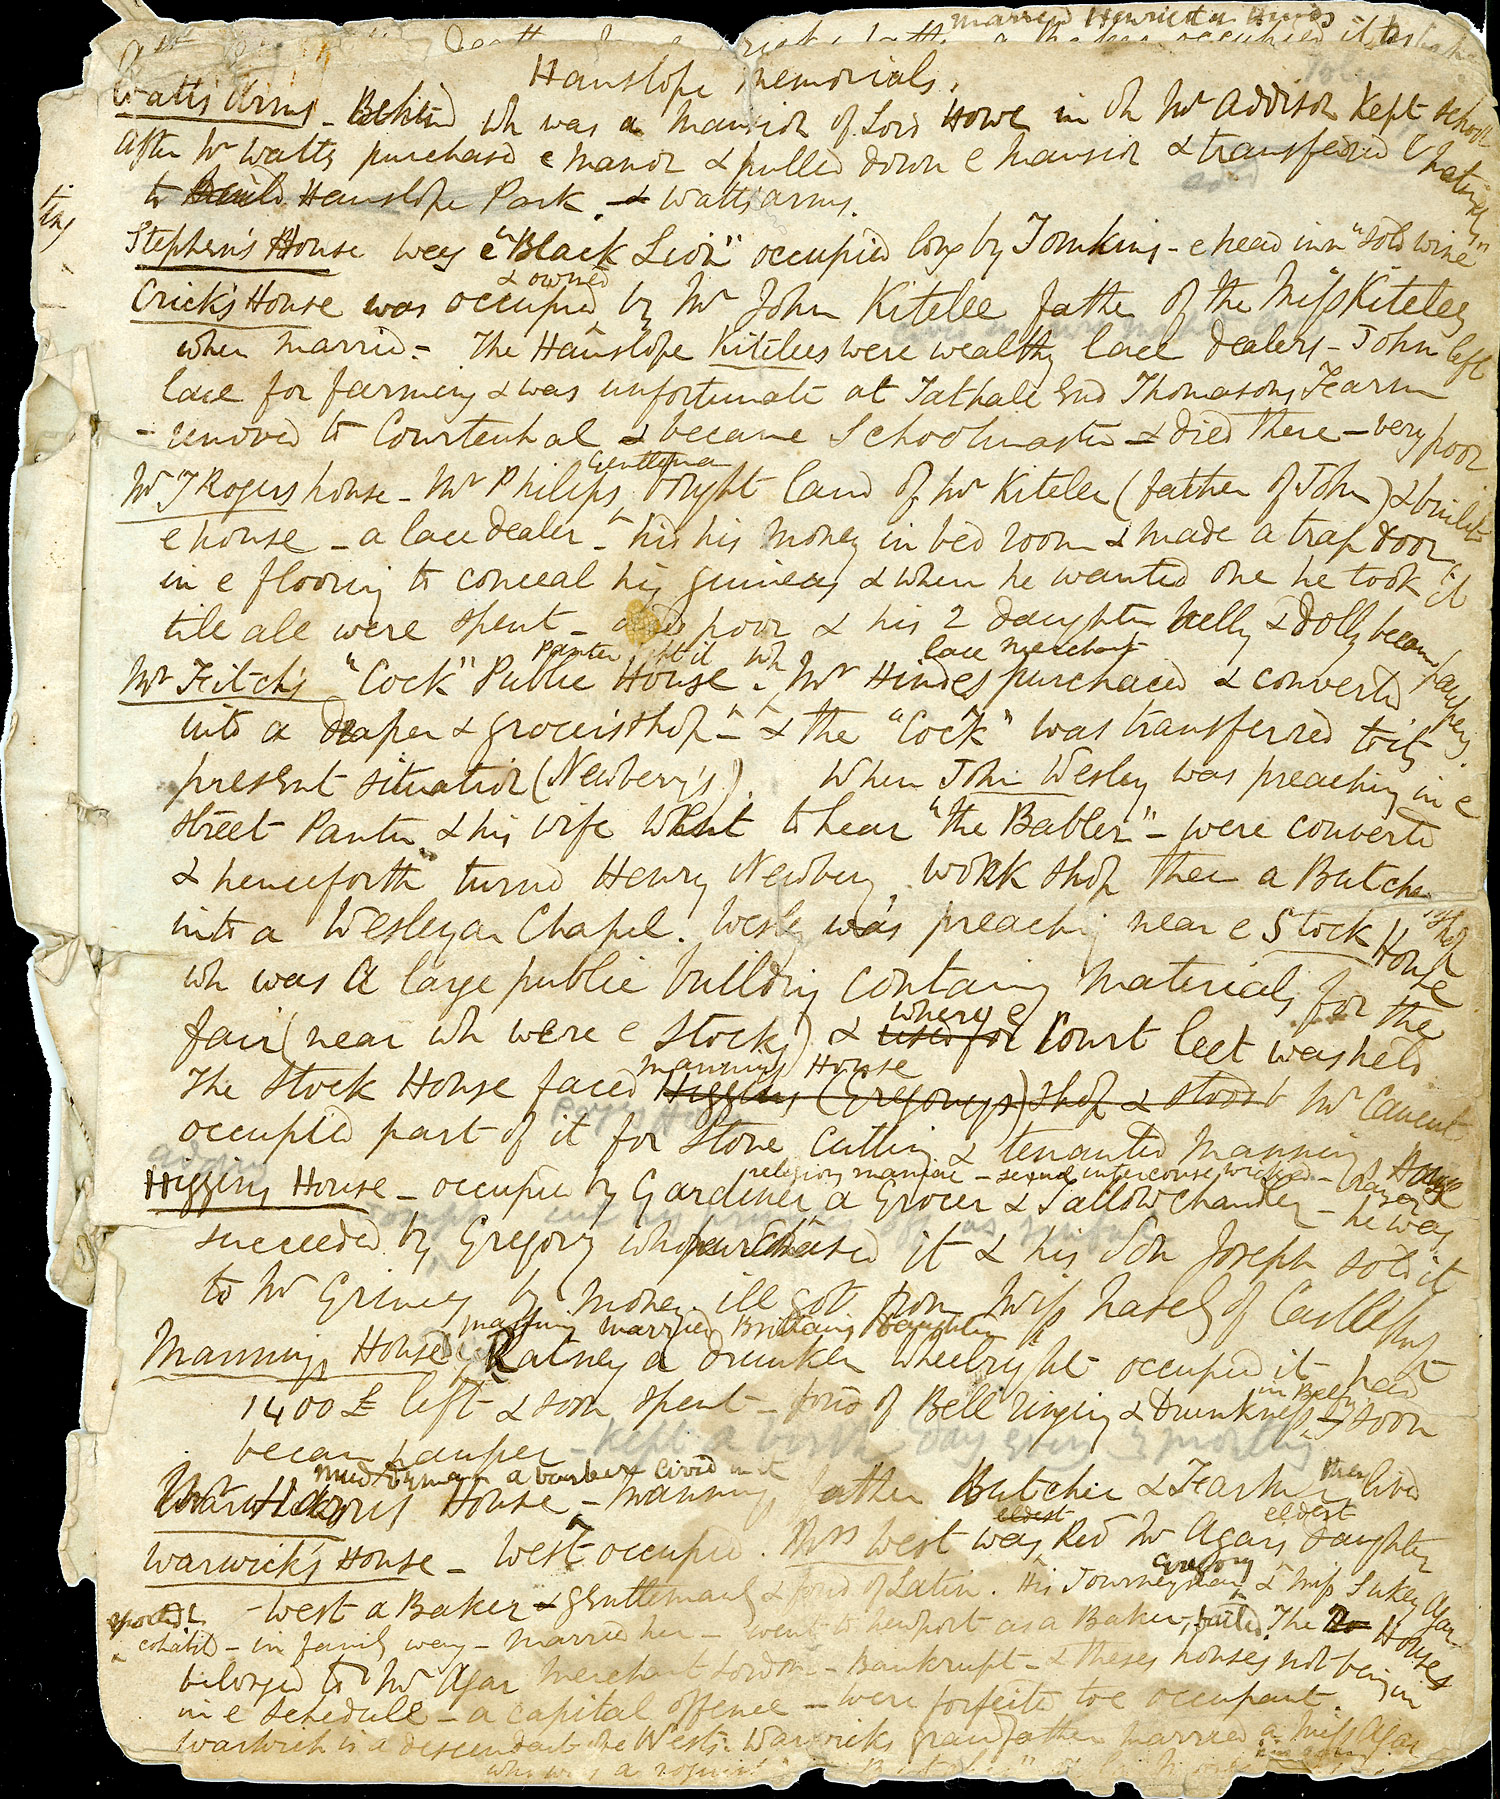 married Henrietta Hinds
Hanslope memorials.
Watts Arms - Behind wh was a Mansion of Lord Howe in wh Mr Addison kept school
After Mr Watts purchased e manor & pulled down e mansion & transferred e materials
to Build Hanslope Park. & Watts arms.
Stephen's House was e "Black Lion" occupied long by Tomkins - e head inn "sold wine"
& owned
Crick's House was occupied by Mr John Kitelee father of the Miss Kitelees
when married - The Hanslope Kitelees were wealthy lace dealers - John left
lace for farming & was unfortunate at Tathall End Thomasons Fearm
- removed to Courtenhal & became Schoolmaster & died there - very poor
Gentleman
Mr J Rogers house - Mr Philips bought land of Mr Kitelee (father of John) & builded
e house - a lace dealer - hid his money in bed room & made a trap door
in e flooring to conceal his guineas & when he wanted one he took it
till all were spent - died poor & his 2 daughters Nelly & Dolly became paupers
Panter left it wh lace merchant
Mr Fitch's "Cock" Public House - Mr Hindes purchased & converted
into a draper & grocers shop - & the "Cock" was transferred to its
present situation (Newbery's). When John Wesley was preaching in e
street Panter & his wife went to hear "the Babler" - were converted
& henceforth turned Henry Newbery work shop then a Butcher shop
into a Wesleyan Chapel. Wesley was preaching near e Stock House
wh was a large public building containg materials for the
where e
fair (near wh were e stocks) & used for Court leet was held
mannings House
The Stock House faced Higgins (Gregorys) shop & stood Mr Cament
occupied part of it for stone cutting & tenanted Manning House
religion maniac - sexual intercourse wicked - crazed
Higgins House - occupied by Gardiner a Grocer & Tallow chandler - he was
succeeded by Gregory who purchased it & his Son Joseph sold it
to Mr Grimes by money ill got from Miss of Castle
manning married Brittains daughter
Mannings House Ratney a drunken wheelright occupied it had
in Belfry
1400 £ left & soon spent - fond of Bell ringing & drunkness - & soon
became pauper - kept a birth day every 3 months
a barber lived in it
House - Manning father Butcher & Fearmer then lived
eldest eldest
Warwick's House - West occupied. Mrs West was Mr Agars daughter
Gregory
- West a Baker & gentleman & fond of Latin. His Journeyman & Miss Sukey Agar
cohabited - in family way - married her - went to newport as a Baker, failed. The Houses
belonged to Mr Agar merchant London - Bankrupt - & theses houses not being in
in e schedule - a capital offence - were forfeited to e occupant.
Warwick is a descendant e Wests. Warwicks grandfather married a Miss Agar